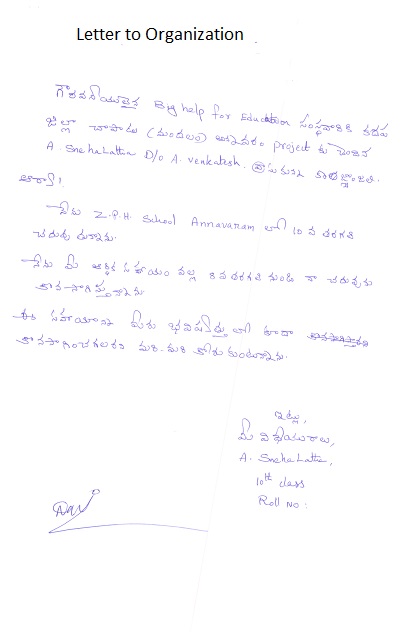 Letter to Organization
గౌరవనీయులైన Big help for Education సంస్థవారికి కడప
జిల్లా చాపాడు (మండలం) అన్నవరం project కు చెందిన
A. SnehaLatha D/o A. venkatesh. కృతజ్ఞాంజలి.
ఆర్యా!
నేను Z.P.H. School Annavaram లో 10 వ తరగతి
చదువు తున్నాను.
నేను మీ ఆర్థిక సహాయం వల్ల 8 వ తరగతి నుండి నా చదువును
కొనసాగిస్తున్నాను.
ఈ సహాయాన్ని మీరు భవిష్యత్తు లో కూడా
కొనసాగించగలరని మరి-మరి కోరుకుంటున్నాను.
ఇట్లు,
మీ విధేయురాలు,
A. SnehaLatha,
10th class
Roll No :